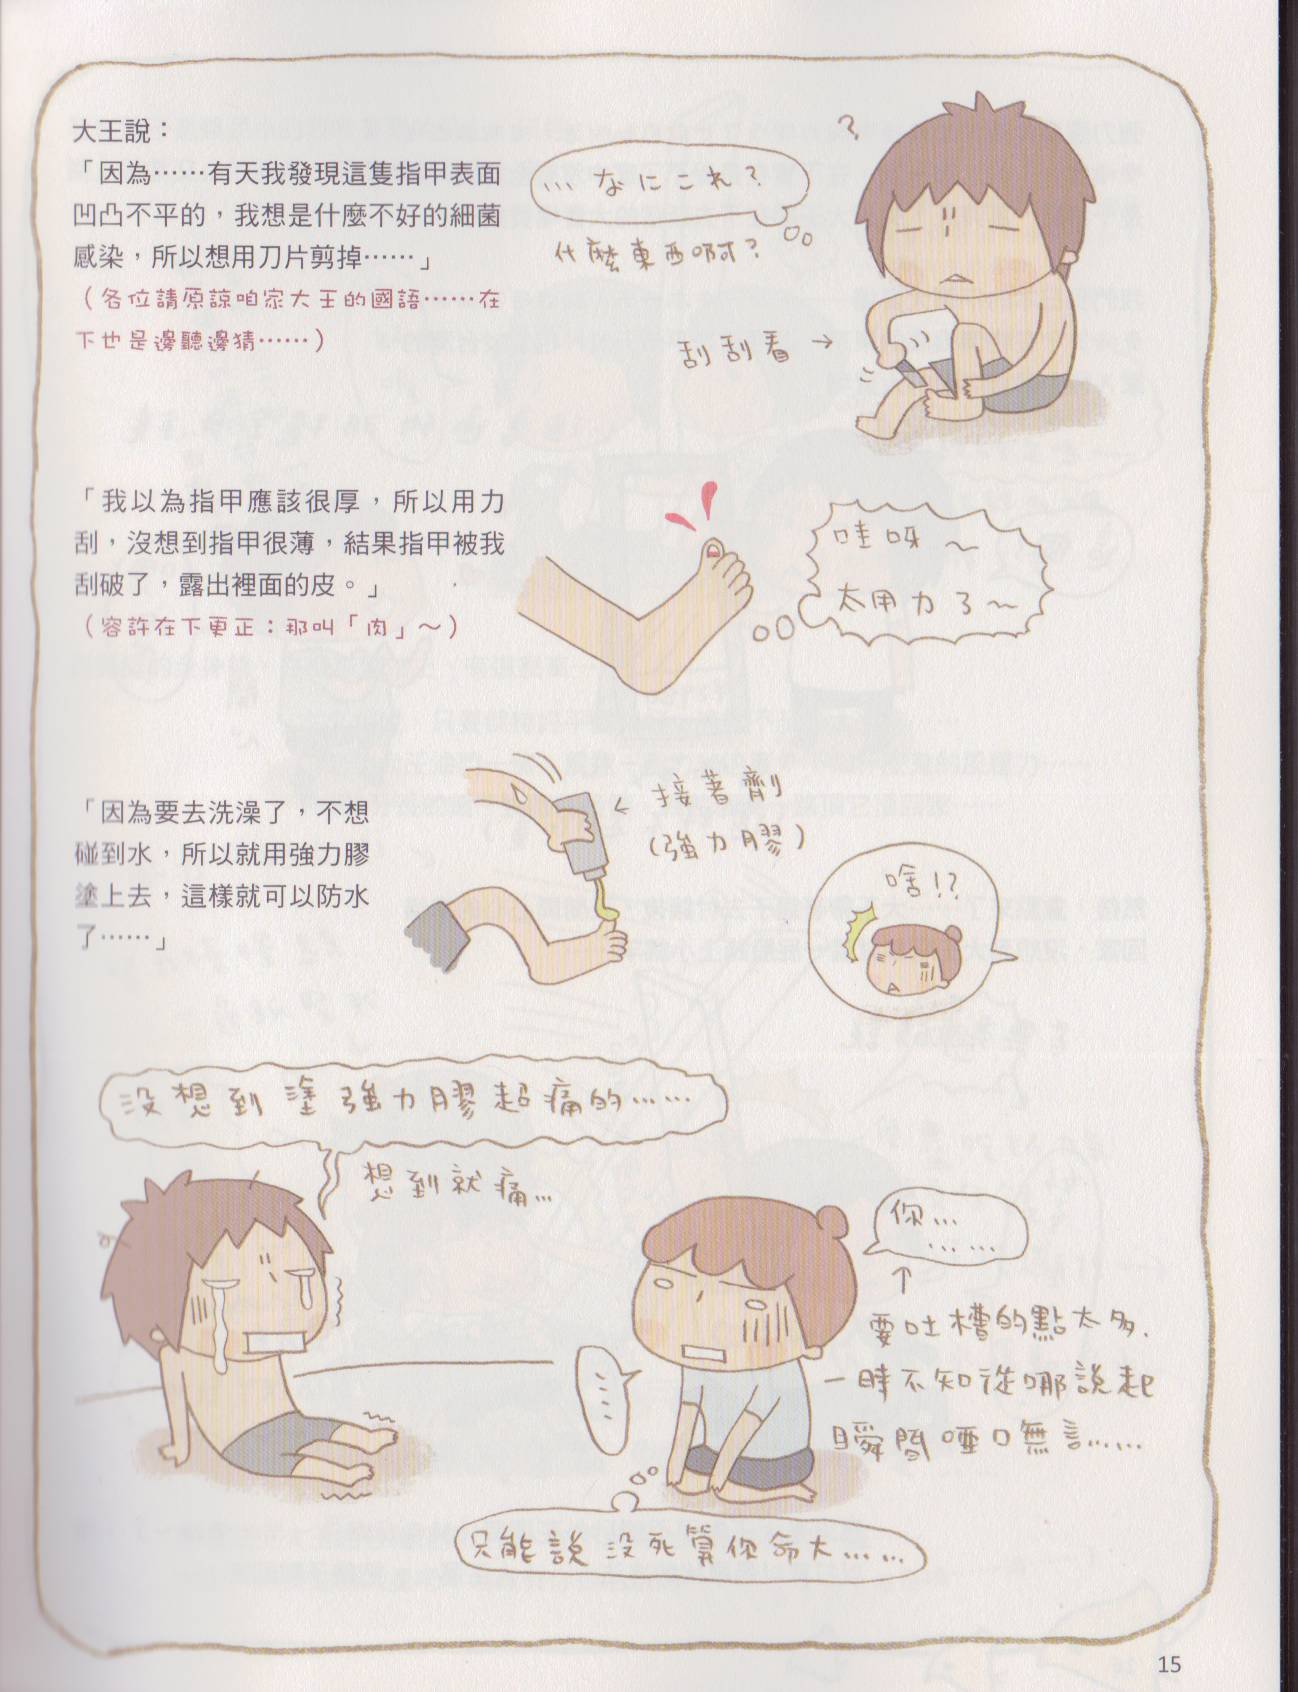 大王說：
「因為……有天我發現這隻指甲表面
凹凸不平的，我想是什麼不好的細菌
感染，所以想用刀片剪掉……」
（各位請原諒咱家大王的國語……在
下也是邊聽邊猜……）
?
…なにこれ?
什麼東西啊?
刮刮看→
「我以為指甲應該很厚，所以用力
刮，沒想到指甲很薄，結果指甲被我
刮破了，露出裡面的皮。」
（容許在下更正：那叫「肉」～）
哇呀～
太用力了～
「因為要去洗澡了，不想
碰到水，所以就用強力膠
塗上去，這樣就可以防水
了……」
←接著劑
(強力膠)
啥!?
沒想到塗強力膠超痛的……
想到就痛…
你…
……
↑
要吐槽的點太多,
一時不知從哪說起
瞬間啞口無言……
……
只能說沒死算你命大……
15